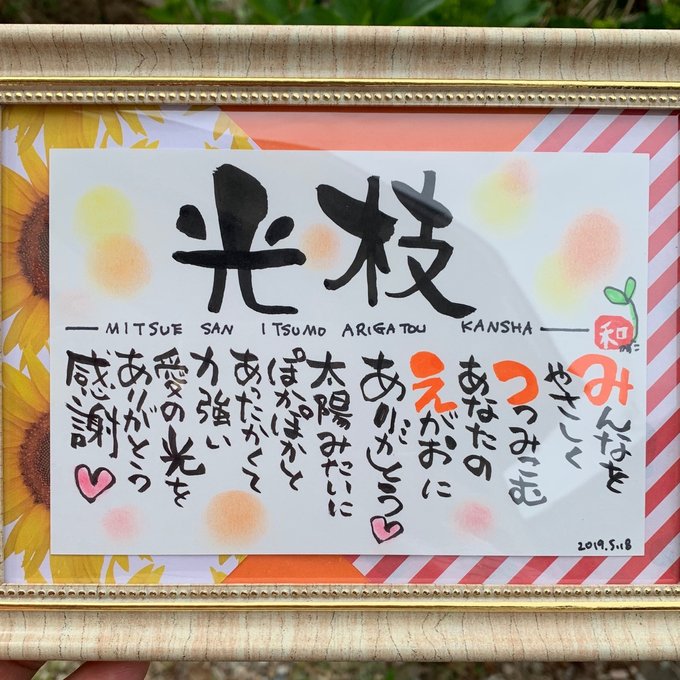 光枝
MITSUE SAN ITSUMO ARIGATOU KANSHA
和
みんなを
やさしく
つつみこむ
あなたの
えがおに
ありがとう
太陽みたいに
ぽかぽかと
あったかくて
力強い
愛の光を
ありがとう
感謝
2019.5.18